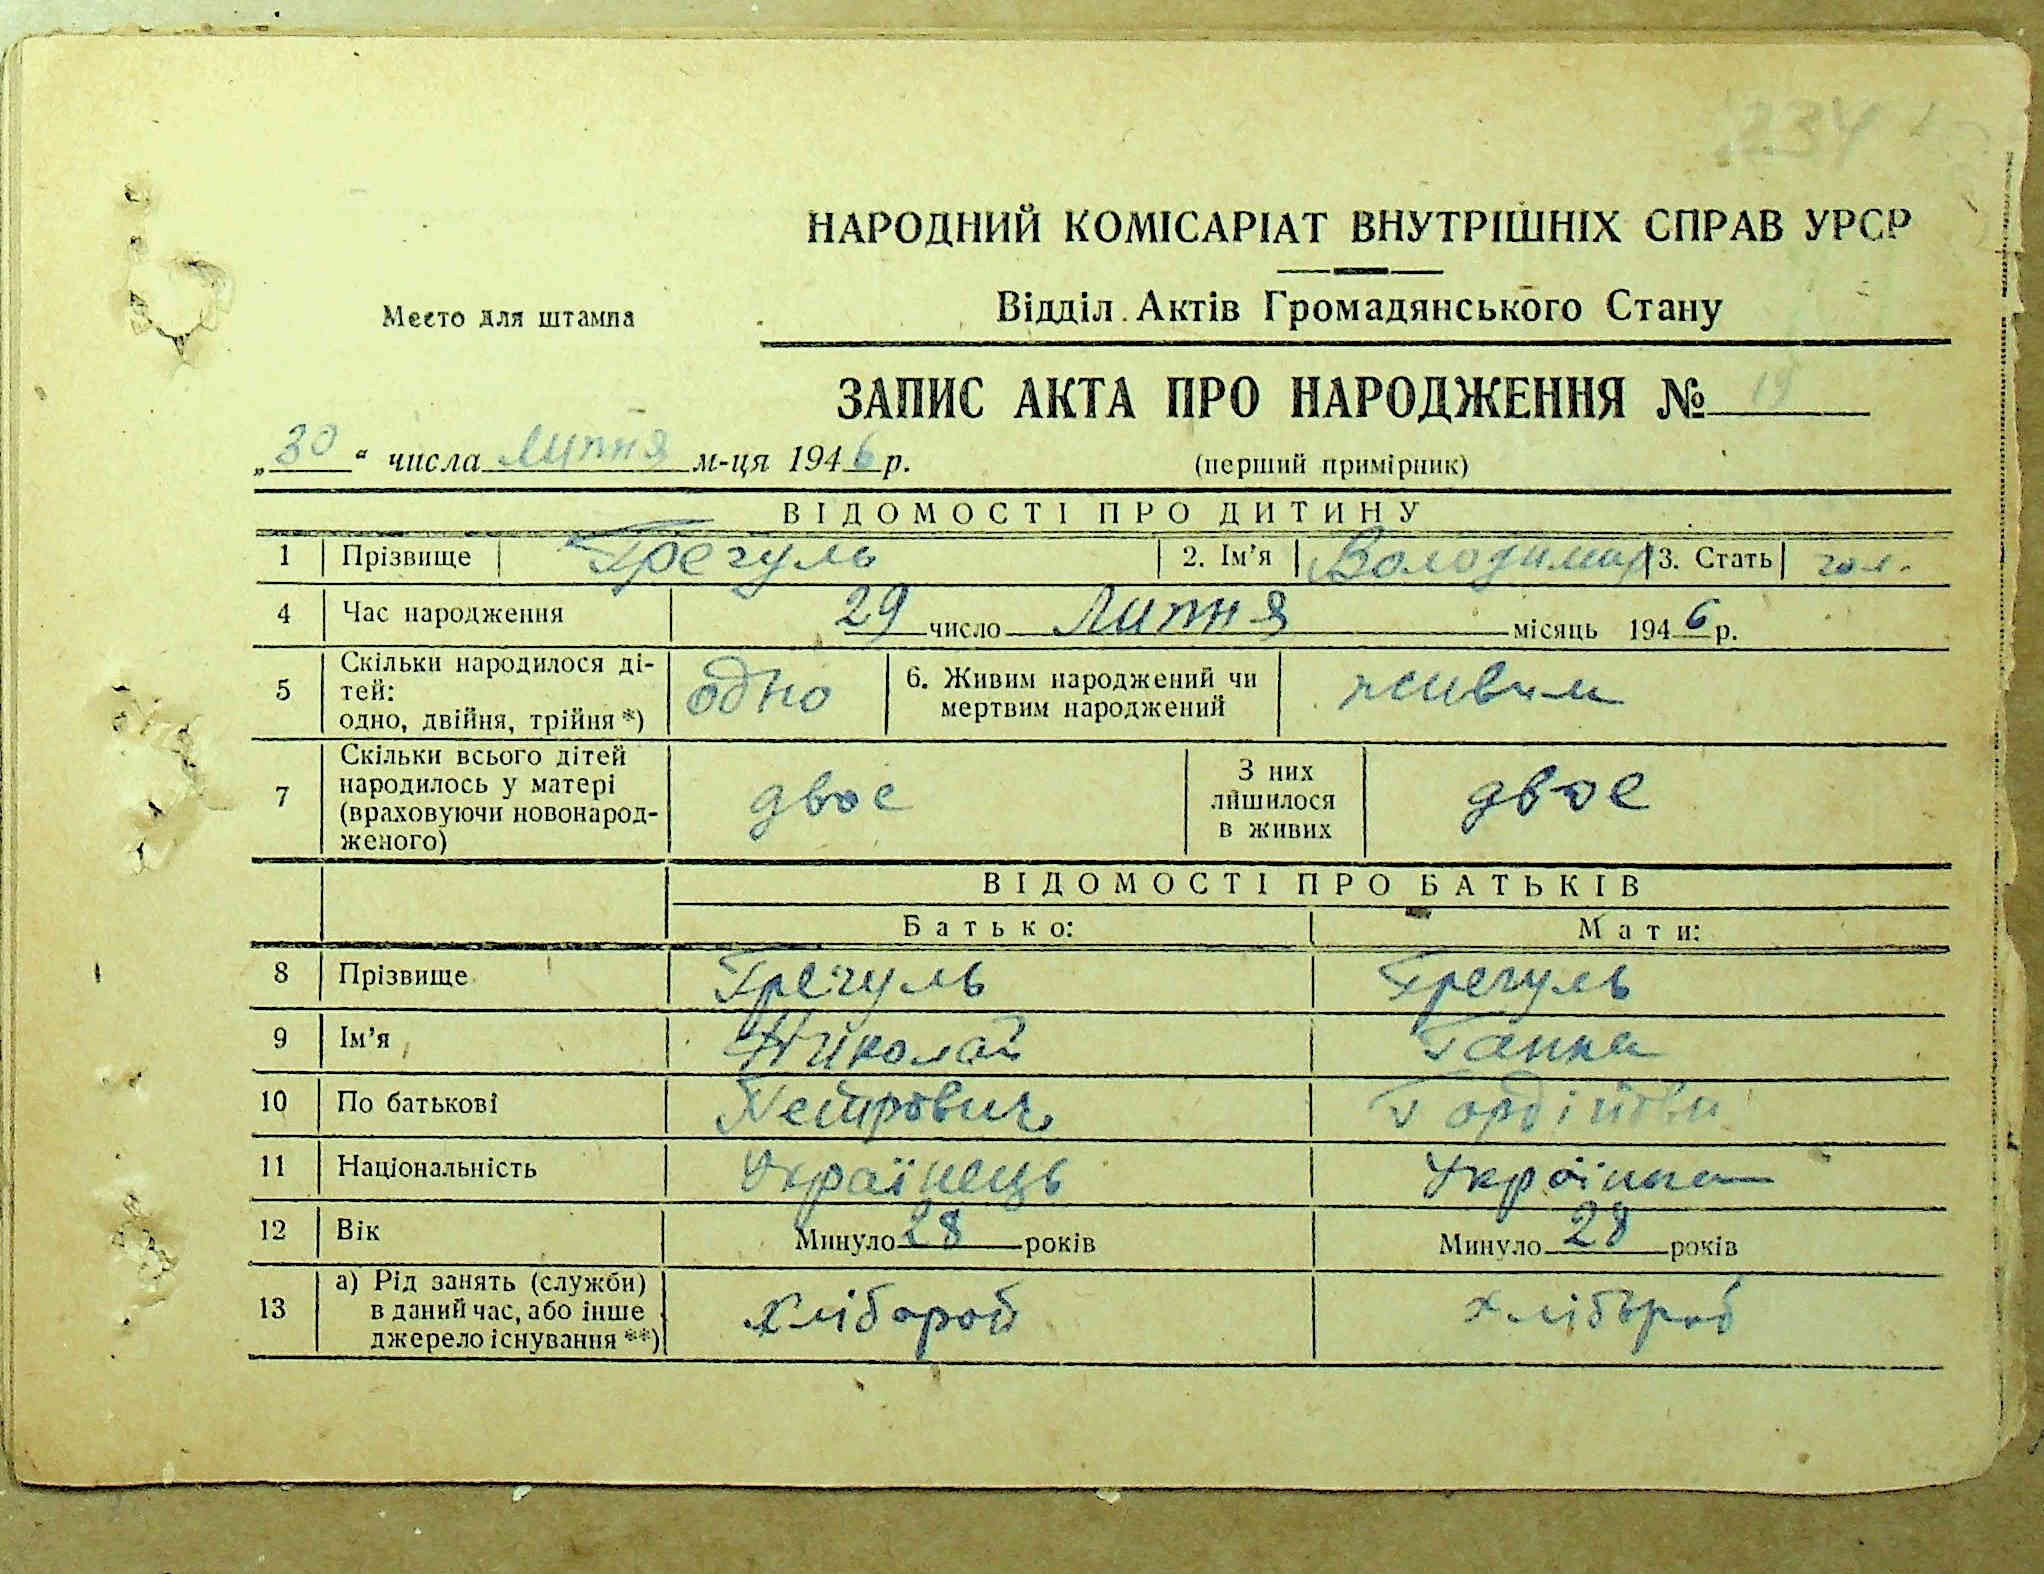 234
НАРОДНИЙ КОМІСАРІАТ ВНУТРІШНІХ СПРАВ УРСР
Место для штампа
Відділ Актів Громадянського Стану
ЗАПИС АКТА ПРО НАРОДЖЕННЯ № 19
„30“ числа Липня м-ця 1946 р.
(перший примірник)
ВІДОМОСТІ ПРО ДИТИНУ
1 Прізвище Гречуль 2. Ім’я Володимир 3. Стать чол.
4 Час народження 29 число Липня місяць 1946 р.
5 Скільки народилося ді-
тей:
одно, двійня, трійня *) одно 6. Живим народжений чи
мертвим народжений живим
7 Скільки всього дітей
народилось у матері
(враховуючи новонарод-
женого) двое З них
лишилося
в живих двое
ВІДОМОСТІ ПРО БАТЬКІВ
Батько: Мати:
8 Прізвище Гречуль Гречуль
9 Ім’я Николай Ганна
10 По батькові Петрович Гордіївна
11 Національність Українець Українка
12 Вік Минуло 28 років Минуло 28 років
13 а) Рід занять (служби)
в даний час, або інше
джерело існування **) хлібороб хлібороб